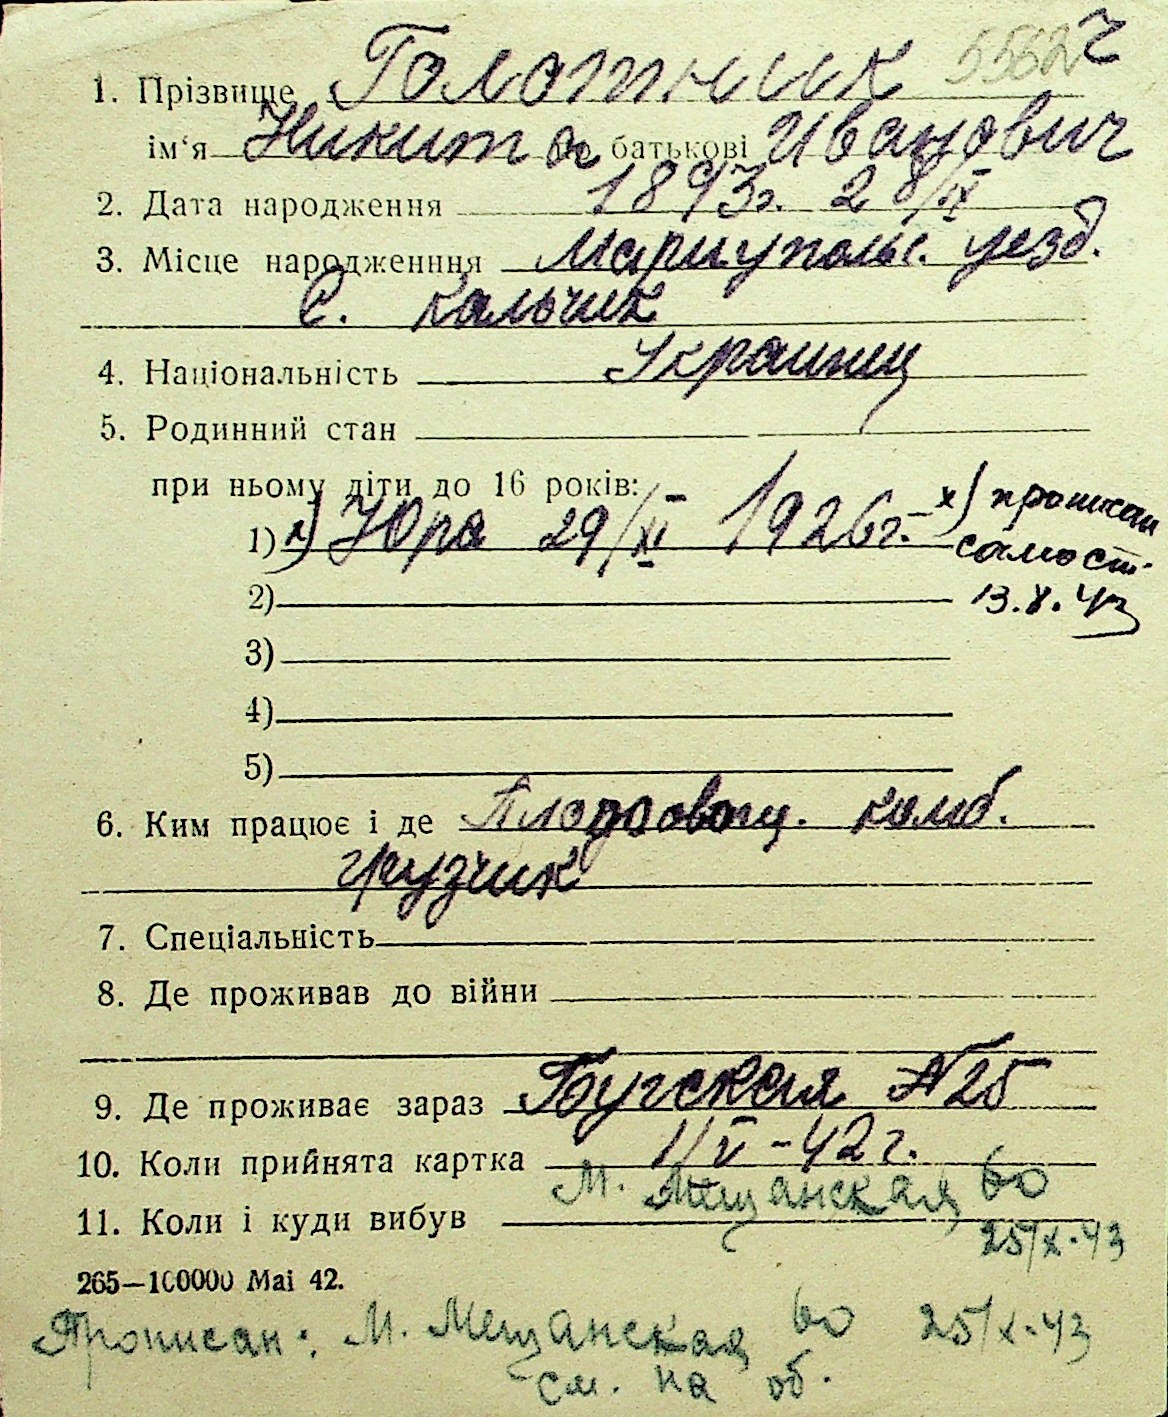 55622
1. Прізвище Голотник
ім‘я Никита по батькові Иванович
2. Дата народження 1893г. 28/IX
3. Місце народженння Мариупольс. уезд.
С. Кальчик
4. Національність Украинец
5. Родинний стан
при ньому діти до 16 років:
1) х) Юра 29/XI 1926г. х) прописан
самост.
2) 13.X.43
3)
4)
5)
6. Ким працює і де Плодоовощ. комб.
грузчик
7. Спеціальність
8. Де проживав до війни
9. Де проживає зараз Бугская №25
10. Коли прийнята картка 1/V-42г.
М. Мещанская 60
11. Коли і куди вибув 25/X-43
265—100000 Mai 42.
Прописан: М. Мещанская 60 25/X-43
см. на об.